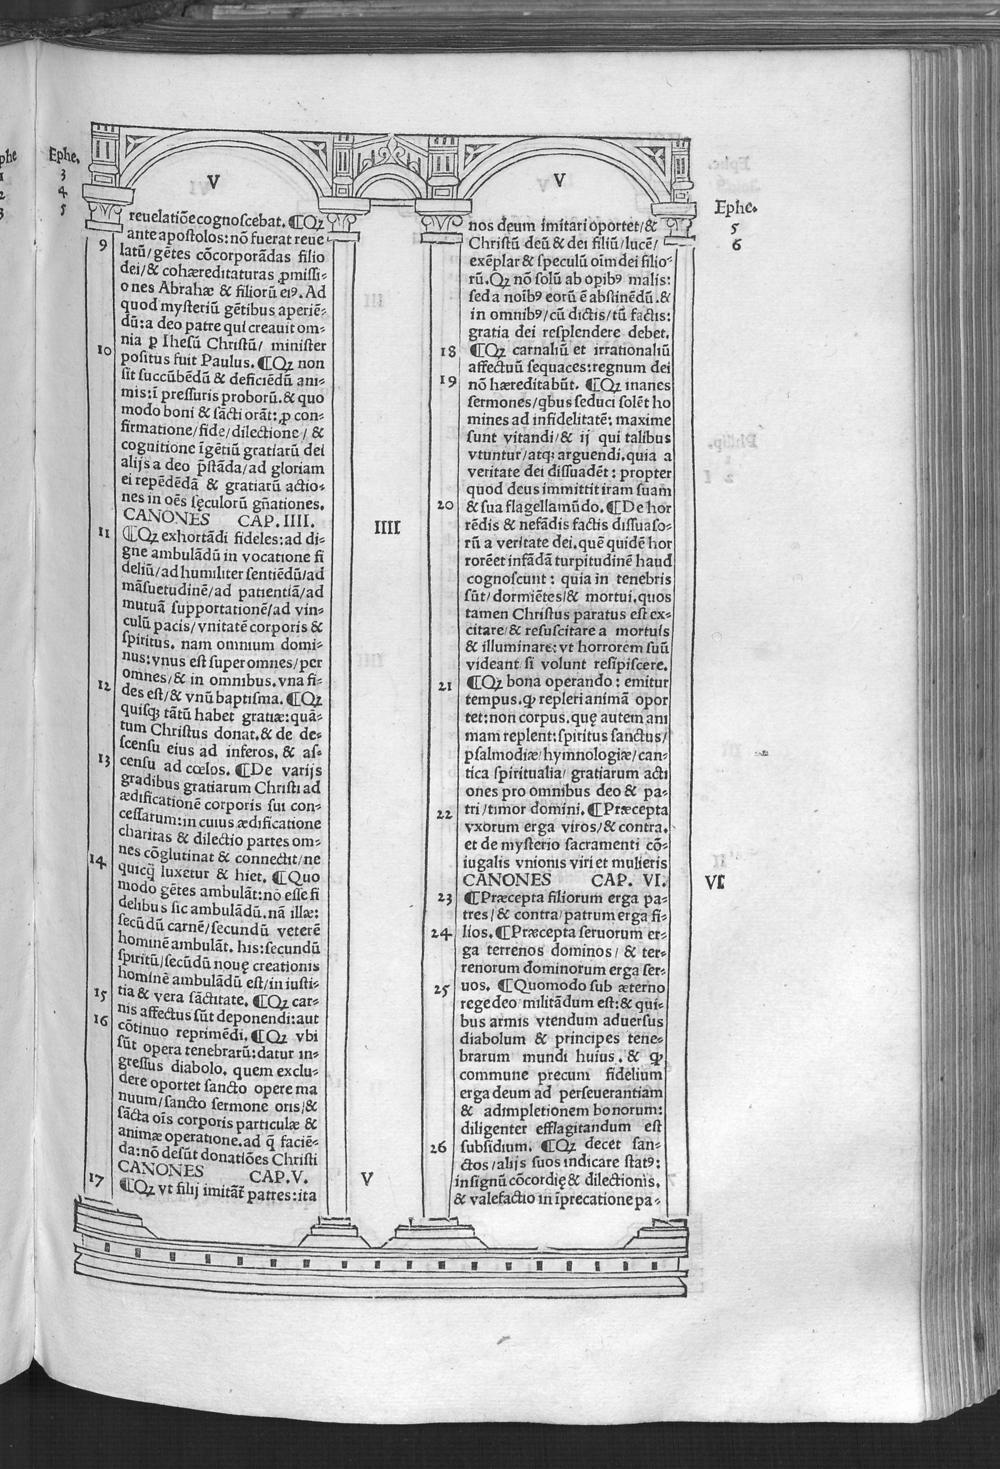 Ephe.
3
4
5
V
reuelatiõe cognoſcebat. ¶Qꝫ
ante apoſtolos: nõ fuerat reue
9 latũ/ gẽtes cõcorporãdas filio
dei/ & cohæreditaturas ꝓmiſſi-
ones Abrahæ & filiorũ eiꝰ. Ad
quod myſteriũ gẽtibus aperiẽ-
dũ: a deo patre qui creauit om-
nia ꝑ Iheſũ Chriſtũ/ miniſter
10 poſitus fuit Paulus. ¶Qꝫ non
ſit ſuccũbẽdũ & deficiẽdũ ani-
mis: ĩ preſſuris proborũ. & quo
modo boni & ſãcti orãt: ꝓ con-
firmatione/ fide/ dilectione/ &
cognitione ĩgẽtiũ gratiarũ dei
alijs a deo p̃ſtãda/ ad gloriam
ei repẽdẽdã & gratiarũ actio-
nes in oẽs ſęculorũ gñationes.
CANONES CAP. IIII.
11 ¶Qꝫ exhortãdi fideles: ad di-
gne ambulãdũ in vocatione fi
deliũ/ ad humiliter ſentiẽdũ/ ad
mãſuetudinẽ/ ad patientiã/ ad
mutuã ſupportationẽ/ ad vin-
culũ pacis/ vnitatẽ corporis &
ſpiritus. nam omnium domi-
nus: vnus eſt ſuper omnes/ per
omnes/ & in omnibus. vna fi-
12 des eſt/ & vnũ baptiſma. ¶Qꝫ
quiſqꝫ tãtũ habet gratiæ: quã-
tum Chriſtus donat. & de de-
ſcenſu eius ad inferos. & aſ-
13 cenſu ad cœlos. ¶De varijs
gradibus gratiarum Chriſti ad
ædificationẽ corporis ſui con-
ceſſarum: in cuius ædificatione
charitas & dilectio partes om-
nes cõglutinat & connectit/ ne
14 quicq̃ luxetur & hiet. ¶Quo
modo gẽtes ambulãt: nõ eſſe fi
delibus ſic ambulãdũ. nã illæ:
ſecũdũ carnẽ/ ſecundũ veterẽ
hominẽ ambulãt. his: ſecundũ
ſpiritũ/ ſecũdũ nouę creationis
hominẽ ambulãdũ eſt/ in iuſti-
15 tia & vera ſãctitate. ¶Qꝫ car-
nis affectus ſũt deponendi: aut
16 cõtinuo reprimẽdi. ¶Qꝫ vbi
ſũt opera tenebrarũ: datur in-
greſſus diabolo. quem exclu-
dere oportet ſancto opere ma
nuum/ ſancto ſermone oris/ &
ſãcta oĩs corporis particulæ &
animæ operatione. ad q̃ faciẽ-
da: nõ deſũt donatiões Chriſti
CANONES CAP. V.
17 ¶Qꝫ vt filij imitãt̃ patres: ita
IIII
V
V
nos deum imitari oportet/ &
Chriſtũ deũ & dei filiũ/ lucẽ/
exẽplar & ſpeculũ oĩm dei filio-
rũ. Qꝫ nõ ſolũ ab opĩbꝰ malis:
ſed a noĩbꝰ eorũ ẽ abſtinẽdũ. &
in omnibꝰ/ cũ dictis/ tũ factis:
gratia dei reſplendere debet.
18 ¶Qꝫ carnaliũ et irrationaliũ
affectuũ ſequaces: regnum dei
19 nõ hæreditabũt. ¶Qꝫ inanes
ſermones/ qbus ſeduci ſolẽt ho
mines ad infidelitatẽ: maxime
ſunt vitandi/ & ij qui talibus
vtuntur/ atqꝫ arguendi. quia a
veritate dei diſſuadẽt: propter
quod deus immittit iram ſuam
20 & ſua flagella mũdo. ¶De hor
rẽdis & nefãdis factis diſſuaſo-
rũ a veritate dei. quẽ quidẽ hor
rorẽ et infãdã turpitudinẽ haud
cognoſcunt: quia in tenebris
ſũt/ dormiẽtes/ & mortui. quos
tamen Chriſtus paratus eſt ex-
citare/ & reſuſcitare a mortuis
& illuminare: vt horrorem ſuũ
videant ſi volunt reſipiſcere.
21 ¶Qꝫ bona operando: emitur
tempus. ꝙ repleri animã opor
tet: non corpus. quę autem ani
mam replent: ſpiritus ſanctus/
pſalmodiæ/ hymnologiæ/ can-
tica ſpiritualia/ gratiarum acti
ones pro omnibus deo & pa-
22 tri/ timor domini. ¶Præcepta
vxorum erga viros/ & contra.
et de myſterio ſacramenti cõ-
iugalis vnionis viri et mulieris
CANONES CAP. VI.
23 ¶Præcepta filiorum erga pa-
tres/ & contra/ patrum erga fi-
24 lios. ¶Præcepta ſeruorum er-
ga terrenos dominos/ & ter-
renorum dominorum erga ſer-
25 uos. ¶Quomodo ſub æterno
rege deo militãdum eſt: & qui-
bus armis vtendum aduerſus
diabolum & principes tene-
brarum mundi huius. & ꝙ
commune precum fidelium
erga deum ad perſeuerantiam
& adimpletionem bonorum:
diligenter efflagitandum eſt
26 ſubſidium. ¶Qꝫ decet ſan-
ctos/ alijs ſuos indicare ſtatꝰ:
inſignũ cõcordię & dilectionis.
& valefactio in ĩprecatione pa-
Ephe.
5
6
VI